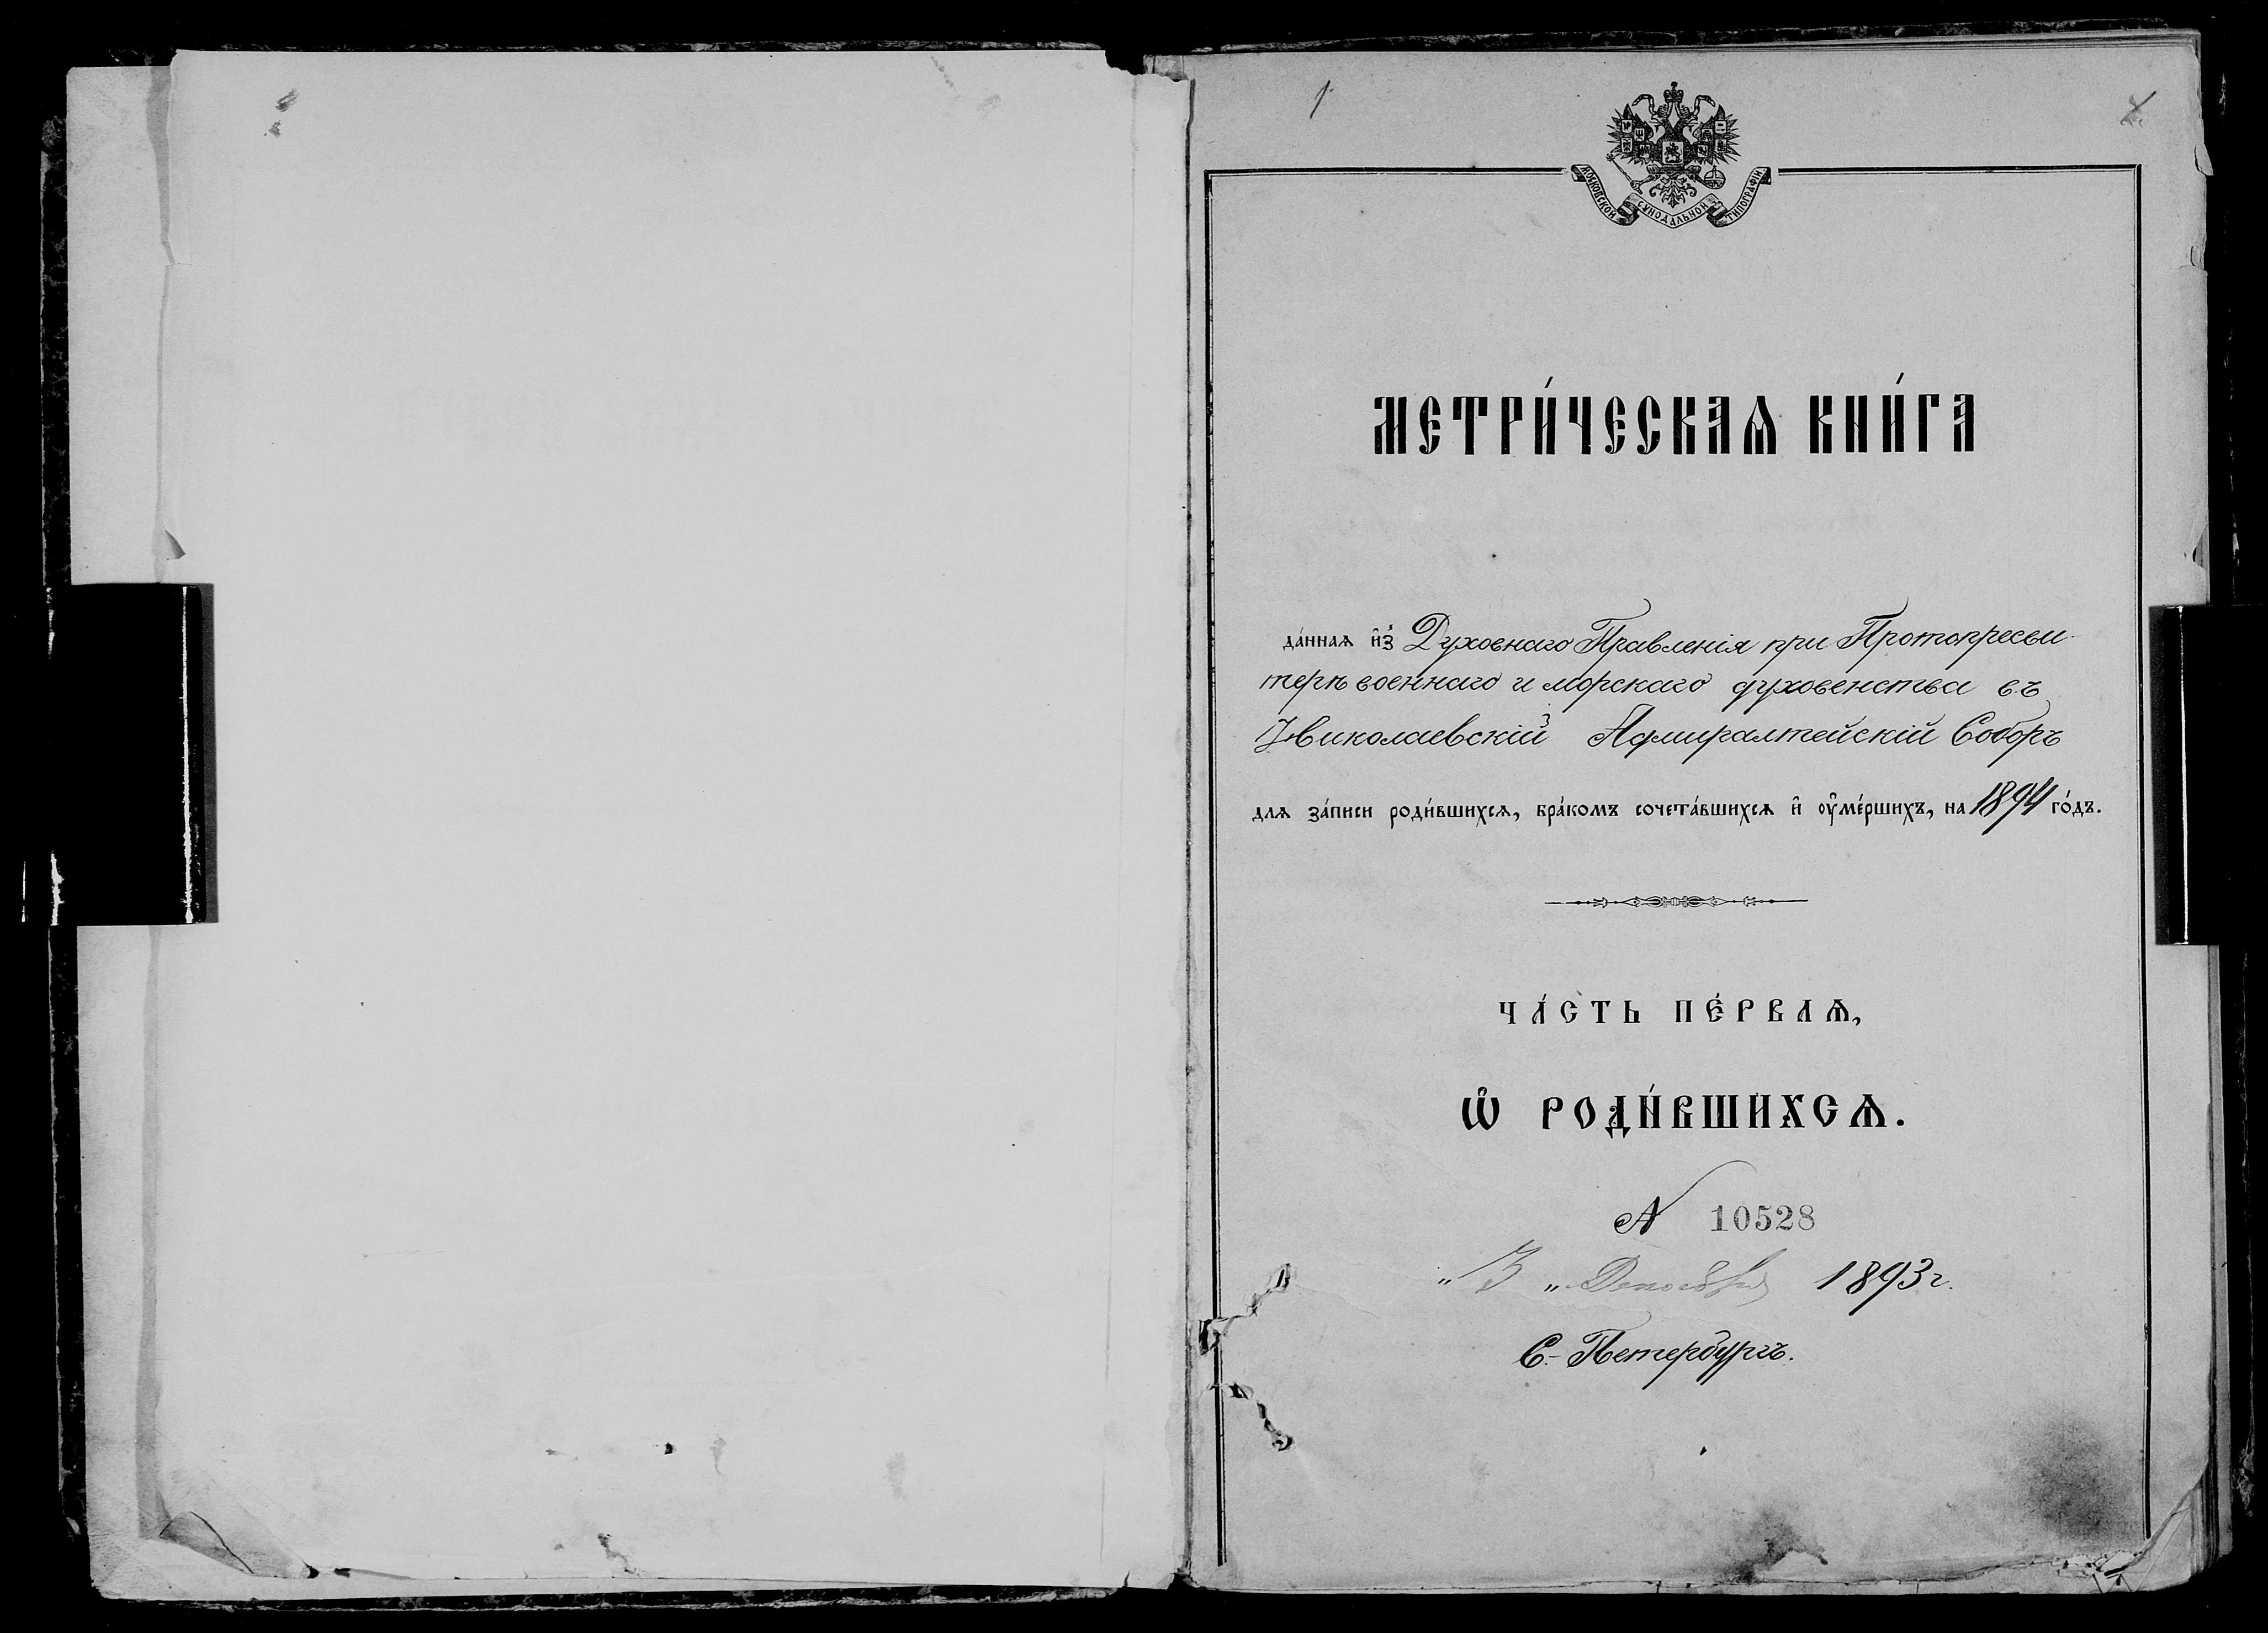 1
МОСКОВСКОЙ СУНОДАЛЬНОЙ ТИПОГРАФІИ
МЕТРИ́ЧЕСКАѦ КНИ́ГА
да́ннаѧ и҆з̾ Духовнаго Правленія при Протопресви-
терѣ военнаго и морскаго духовенства въ
Николаевскій Адмиралтейскій Соборъ
длѧ за́писи роди́вшихсѧ, бра́комъ сочета́вшихсѧ и҆ ᲂу҆ме́ршихъ, на 1894 го́дъ.
ЧА́СТЬ ПЕ́РВАѦ,
Ѡ҆ РОДИ́ВШИХСѦ.
№ 10528
„ 3 „ Декабря 1893 г.
С.-Петербургъ.